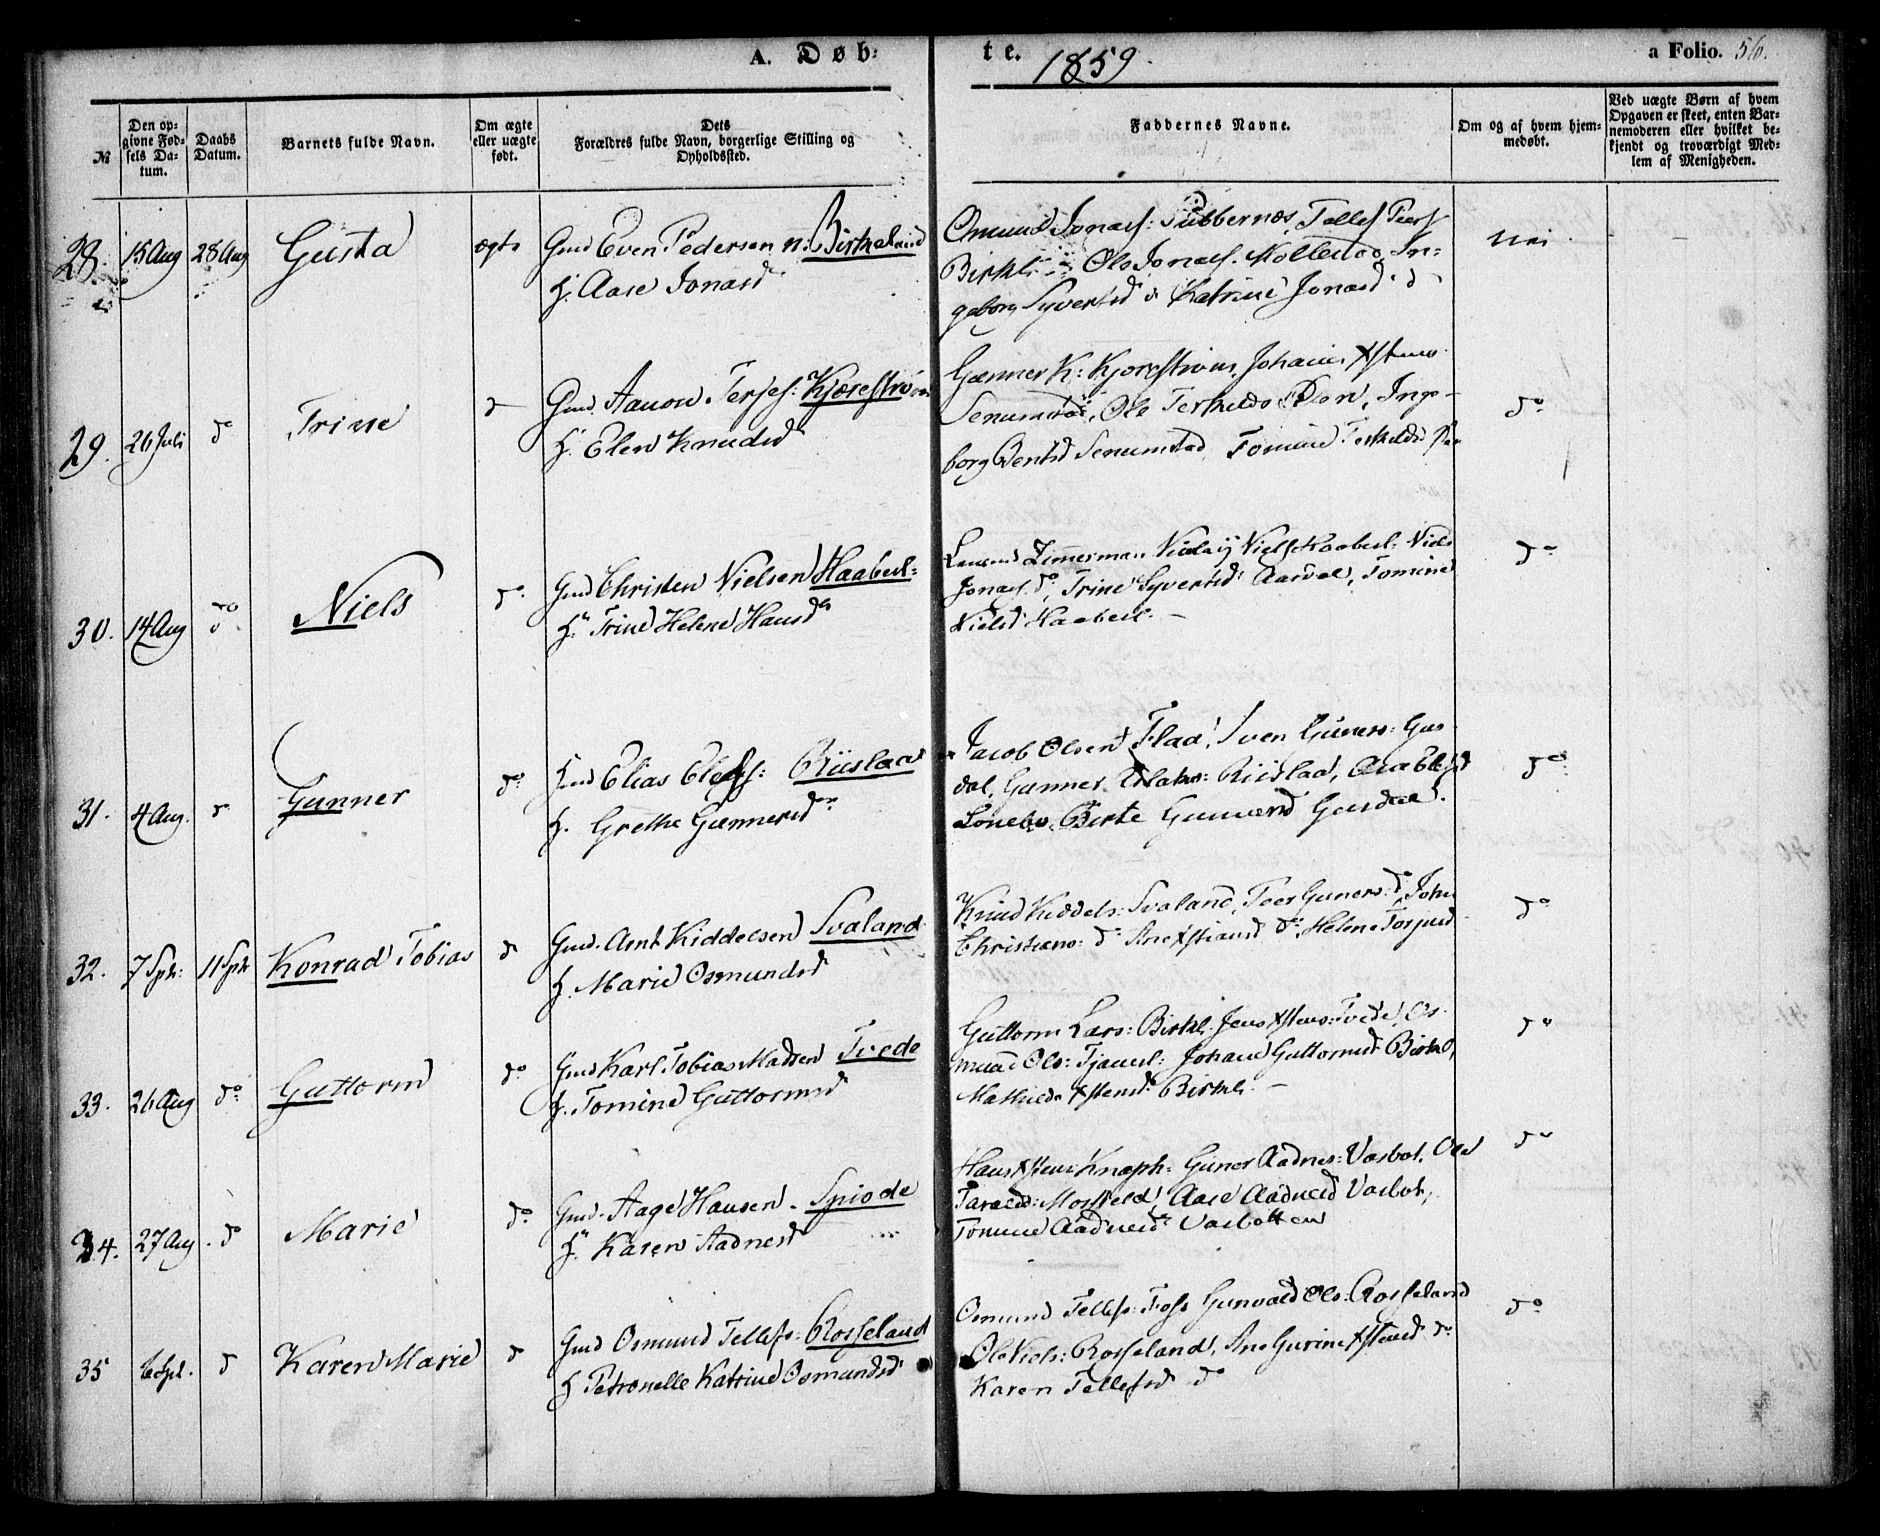 A. Døb:
te. 1859.
a Folio. 56.
№
Den op-
givne Fød-
sels Da-
tum.
Daabs
Datum.
Barnets fulde Navn.
Om ægte
eller uægte
født.
Dets
Forældres fulde Navn, borgerlige Stilling og
Opholdssted.
Faddernes Navne.
Om og af hvem hjem-
medøbt.
Ved uægte Børn af hvem
Opgaven er skeet, enten Bar-
nemoderen eller hvilket be-
kjendt og troværdigt Med-
lem af Menigheden.
28. 15 Aug 28 Aug Gusta ægte Gmd Even Pedersen n: Birkeland
H. Aase Jonasd
Omund Jonass: Tellef Peers
Birkl: Ole Jonass. Mollestad, In-
geborg Syvertsd Katrine Jonasd d
Nei
29. 26 Juli do Trine d Gmd. Aanon Terjes: Kjørestrøm
H. Elen Knudsd
Gunner K: Kjørestrøm, Johan Xstens
Senumstad, Ole TerkeldsØen, Inge-
borg Bentsd Senumstad Tomine Terkeldsd
do
30. 14 Aug do Niels do Gmd Christen Nielsen Haabesl:
H. Trine Helene Hansd
Zimmerman Nicolaij Niels Haabesl: Niels
Jonass. do, Trine Syvertsd Aasdal, Tomine
Nielsd Haabesl. –
do
31. 4 Aug. d Gunner do Gmd Elias Elefs: Riislaa
H. Grethe Gunnersd
Jacob Olsen Flaa, Sven Guners: Gus-
dal, Gunner Riislaa,
Lonebo, Birte Gunnersd Gusdal.
do
32. 7 Sptr: 11 Sptr Konrad Tobias d Gmd. Arnt Kiddelsen Svaland
H. Marie Osmundsd
Knud Kiddels: Svaland, Peer Guners: do, John
Christians: do Ane Xstiansd do, Helene Torjusd
do
33. 26 Aug do Guttorm do Gmd Karl Tobias Madsen Tvede
H. Tomine Guttormsd
Guttorm Lars: Birkl: Jens Xstens: Tvede, Os-
mund Ols: Tjaaml: Johane Guttormsd Birkl,
Mathilde Xstensd Birkl: –
do
34. 27 Aug. do Marie do Gmd. Aage Hansen. Spiode
H. Karen Aadnesd
Hans Xstens: Knaph: Guner Aadnes: Vasbot, Ole
Taralds: Mosfeld, Aase Aadnesd Vasbot,
Tomine Aadnesd Vasbotten
do
35 6 Spt. d Karen Marie d Gmd Osmund Tellefs: Rosseland
H Petronelle Katrine Osmundsd
Osmund Tellefs: Foss Gunvald Ols: Rosseland
Ole Niels: Rosseland, Ane Gurine Xstensd do
Karen Tellefsd do
do